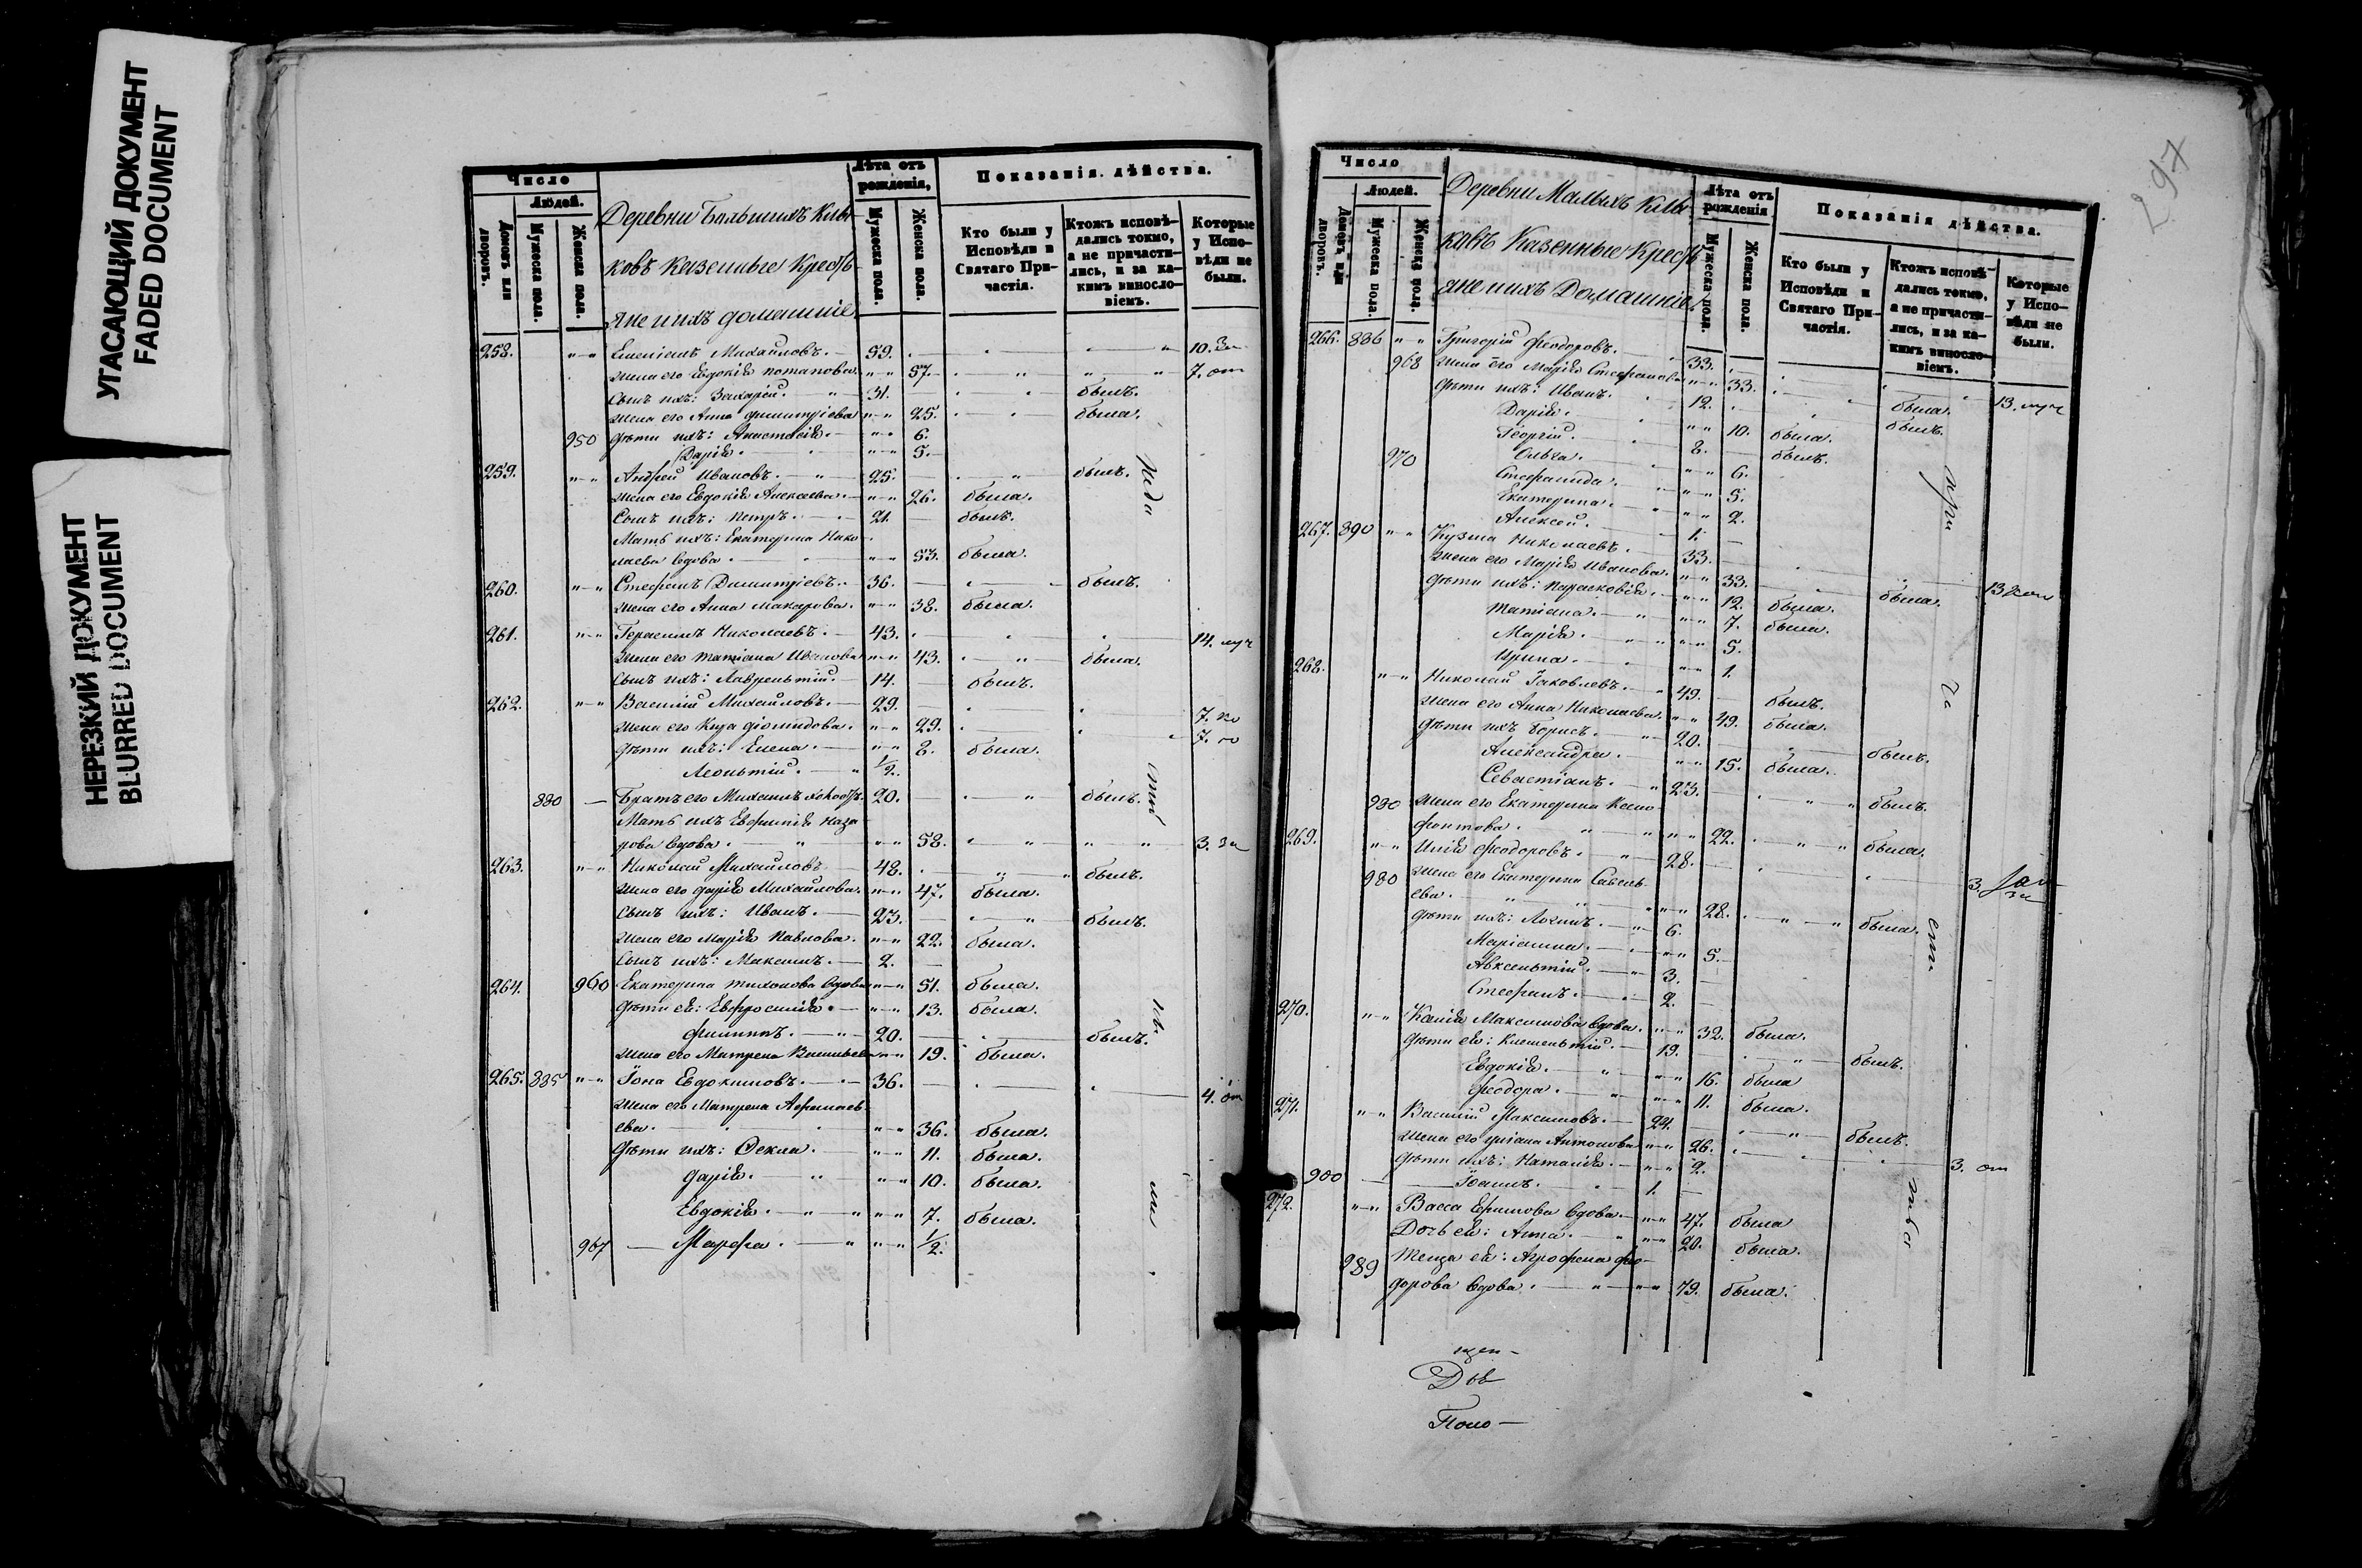 УГАСАЮЩИЙ ДОКУМЕНТ
FADED DOCUMENT
НЕРЕЗКИЙ ДОКУМЕНТ
BLURRED DOCUMENT
Число
Людей.
Домовъ или дворовъ.
Мужеска пола.
Женска пола.
Деревни Большихъ Клы-
ковъ Казенные Кресть-
яне ихъ домашніе
Лѣта отъ рожденія,
Мужеска пола.
Женска пола.
Показанія дѣйства.
Кто были у Исповѣди и Святаго При-частія.
Ктожъ исповѣ-дались токмо, а не причасти-лись, и за ка-кимъ винослo-віемъ.
Которые у Испо-вѣди не были.
258. Емеліанъ Михайловъ. 59. 10. За
жена его Евдокія Потапова 57. 7. от
Сынъ ихъ: Захарій. 31. былъ.
жена его Анна Димитріева 25. была.
950 Дѣти ихъ: Анастасія. 6.
Дарія. 5.
259. Андрей Ивановъ. 25. былъ.
жена его Евдокія Алексеева. 26. была.
Сынъ ихъ: Петръ. 21. былъ.
Мать ихъ: Екатерина Нико-
лаева вдова. 53. была.
260. Стефанъ Димитріевъ. 36. былъ.
жена его Анна Макарова. 38. была.
261. Герасимъ Николаевъ. 43. 14.
жена его Татіана Иванова 43. была.
Сынъ ихъ: Лаврентій. 14. былъ.
262. Василій Михайловъ. 29. 7. по
жена его 29. 7.
Дѣти ихъ: Елена. 8. была.
Леонтій. 1/2.
880 Братъ его Михаилъ 20. былъ.
Мать ихъ Евфимія Наза-
рова вдова. 58. 3. за
263. Николай Михайловъ 48. былъ.
жена его Дарія Михайлова. 47. была.
Сынъ ихъ: Иванъ. 23. былъ.
жена его Марія Павлова. 22. была.
Сынъ ихъ: Максимъ. 2.
264. 960 Екатерина Тихонова вдова 51. была.
Дѣти ея: Евфросинія. 13. была.
Филиппъ. 20. былъ.
жена его Матрена Васильева 19. была.
265. 885 Іона Евдокимовъ. 36. 4. от
жена его Матрена Афанась-
ева. 36. была.
Дѣти ихъ: Фекла. 11. была.
Дарія. 10. была.
Евдокія. 7. была.
967 Марфа. 1/2.
297
Число
Людей.
Домовъ или дворовъ.
Мужеска пола.
Женска пола.
Деревни Малыхъ Клы-
ковъ Казенные Кресть-
яне ихъ Домашніе
Лѣта отъ рожденія
Мужеска пола.
Женска пола.
Показанія дѣйства.
Кто были у Исповѣди и Святаго При-частія.
Ктожъ исповѣ-дались токмо, а не причасти-лись, и за ка-кимъ винослo-віемъ.
Которые у Испо-вѣди не были.
266. 886 Григорій Феодоровъ. 33. 13.
968 жена его Марія Стефанова 33. была.
Дѣти ихъ: Иванъ. 12. былъ.
Дарія. 10. была.
Георгій. 8. былъ.
970 Ольга. 6.
Стефанида. 5.
Екатерина. 2.
Алексей. 1.
267. 890 Кузма Николаевъ. 33. 13
жена его Марія Иванова. 33. была.
Дѣти ихъ: Парасковія. 12. была.
Татіана. 7. была.
Марія. 5.
Ирина. 1.
268. Николай Іаковлевъ. 49. былъ.
жена его Анна Николаева. 49. была.
Дѣти ихъ Борисъ. 20. былъ.
Александра. 15. была.
Севастіанъ. 23. былъ.
980 жена его Екатерина Ксено-
фонтова. 22. была.
269. Илія Феодоровъ. 28. 3. за
980 жена его Екатерина Савель-
ева. 28. была.
Дѣти ихъ: Логинъ. 6.
Маріамна. 5.
Авксентій. 3.
Стефанъ. 2.
270. Ксенія Максимова вдова. 32. была.
Дѣти ея: Климентій. 19. былъ.
Евдокія. 16. была
Феодора. 11. была.
271. Василій Максимовъ. 24. былъ.
жена его Антонова 26. 3. от
Дѣти ихъ: Наталія. 2.
900 Іоаннъ. 1.
272. Васса Ефимова вдова. 47. была
Дочь ея: Анна. 20. была.
989 Теща ея: Агрофена Фео-
дорова вдова. 79. была.
щен-
Дів
Поно-